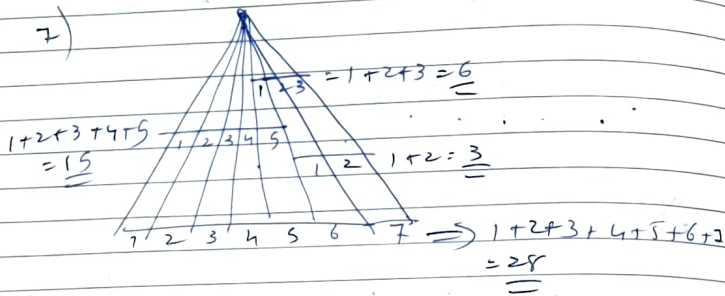 7)
1 2 3 = 1+2+3 = 6
1+2+3+4+5
= 15
1 2 3 4 5
1 2 1+2 = 3
1 2 3 4 5 6 7 ⇒ 1+2+3+4+5+6+7
= 28